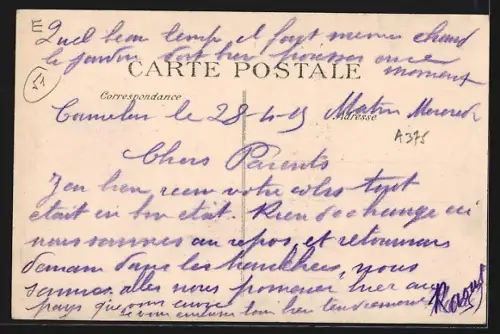 E
Quel beau temp il fait meme chaud
le jardin doit bien pousser en ce
moment
51
CARTE POSTALE
Correspondance
Adresse
le 28-4-15 Matin Mercredi
A375
Chers Parents
J'en bien recu votre colis tout
etait en bon etat. Rien de change ici
nous sommes au repos et retournons
demain dans les tranchees, nous
sommes alles nous promener hier au
pays que vous
je vous embrasse tous bien tendrement